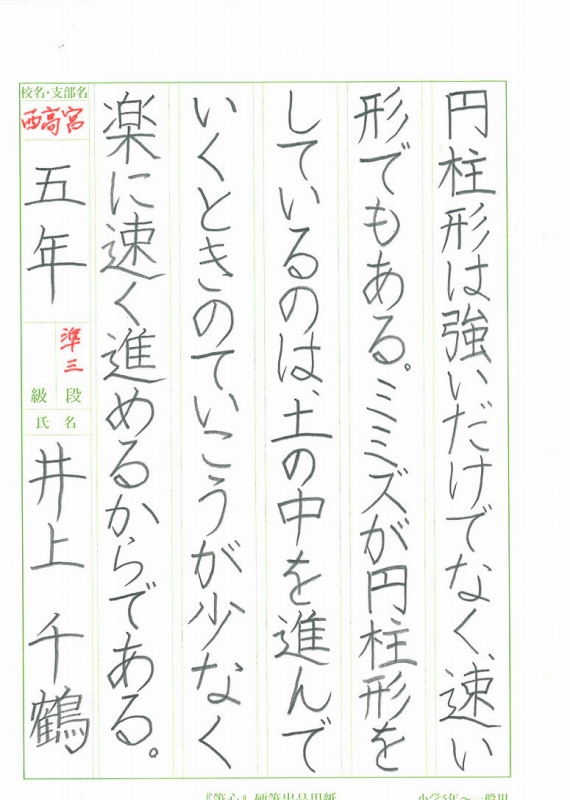 円柱形は強いだけでなく、速い
形でもある。ミミズが円柱形を
しているのは、土の中を進んで
いくときのていこうが少なく
楽に速く進めるからである。
校名・支部名
西高宮
五年
準三
段
級
氏名
井上 千鶴
『筆心』硬筆出品用紙
小学5年〜一般用